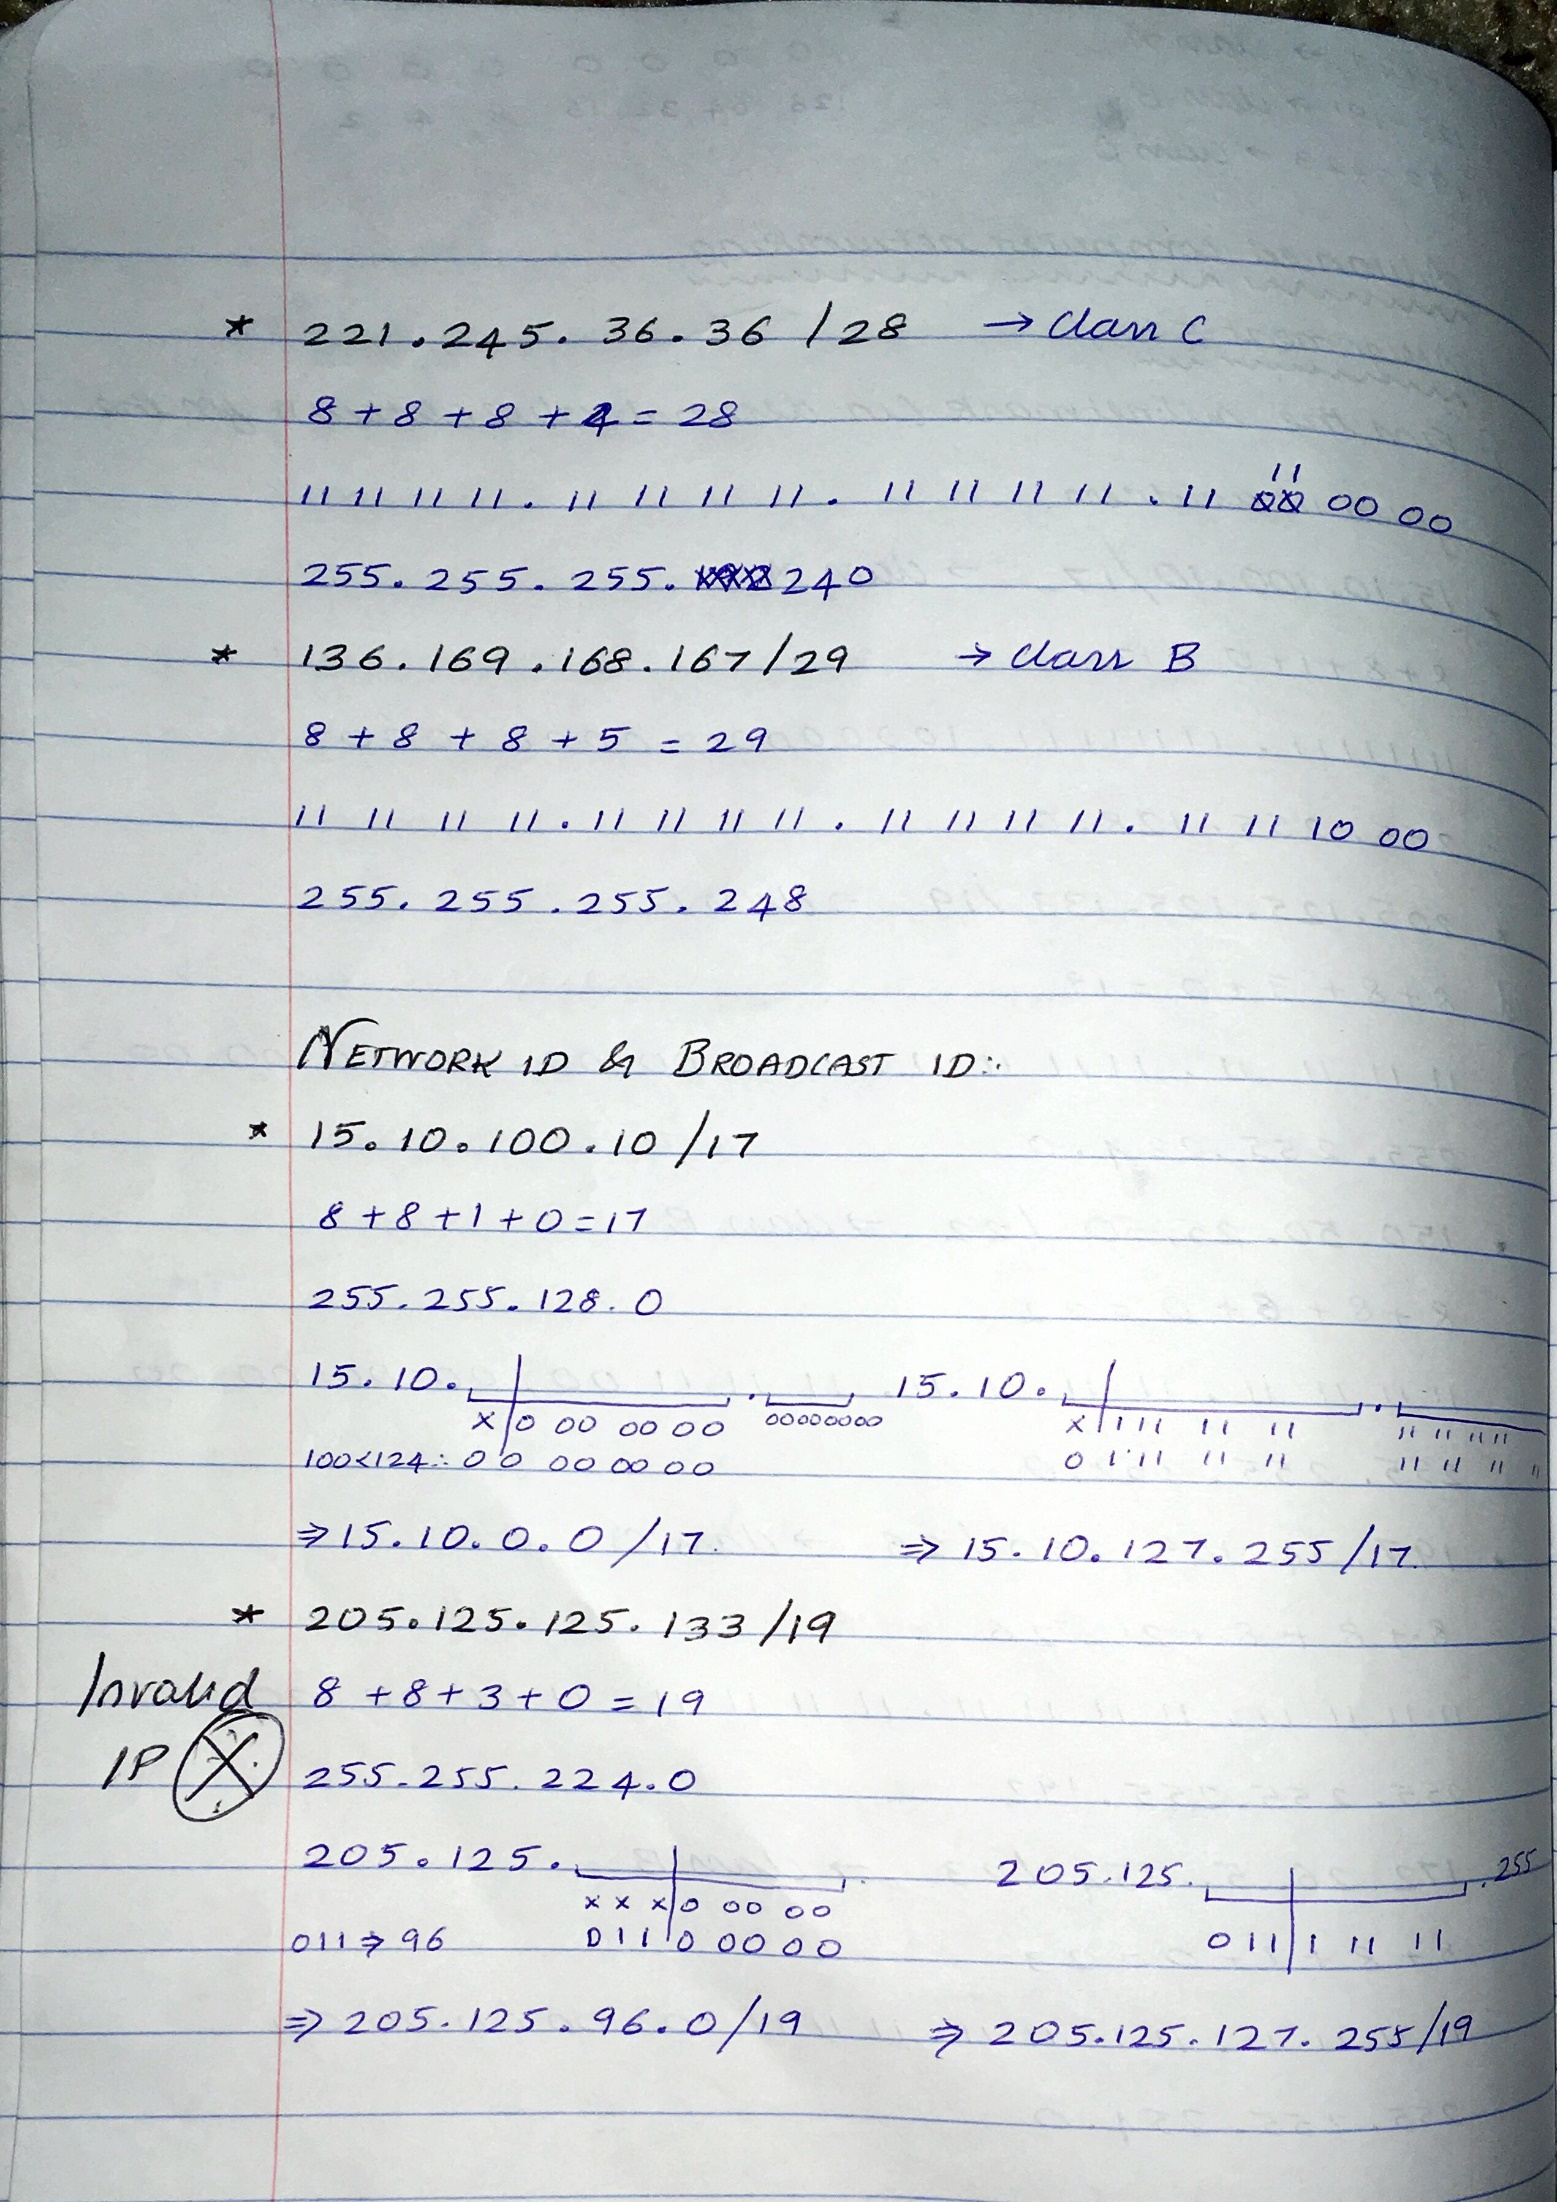 * 221.245.36.36 /28 → Class C
8 + 8 + 8 + 4 = 28
11 11 11 11 . 11 11 11 11 . 11 11 11 11 . 11 11 00 00
255.255.255.240
* 136.169.168.167/29 → Class B
8 + 8 + 8 + 5 = 29
11 11 11 11 . 11 11 11 11 . 11 11 11 11 . 11 11 10 00
255.255.255.248
NETWORK ID & BROADCAST ID:.
* 15.10.100.10 /17
8 + 8 + 1 + 0 = 17
255.255.128.0
15.10. . 15.10. .
X 0 00 00 00 00000000 X 1 11 11 11 11 11 11 11
100<124 ∴ 0 0 00 00 00 0 1 11 11 11 11 11 11 11
⇒ 15.10.0.0 /17. ⇒ 15.10.127.255/17.
* 205.125.125.133 /19
Invalid 8 + 8 + 3 + 0 = 19
IP X 255.255.224.0
205.125. . 205.125. .255
X X X 0 00 00
011 ⇒ 96 0 1 1 0 00 00 0 11 1 11 11
⇒ 205.125.96.0/19 ⇒ 205.125.127.255/19